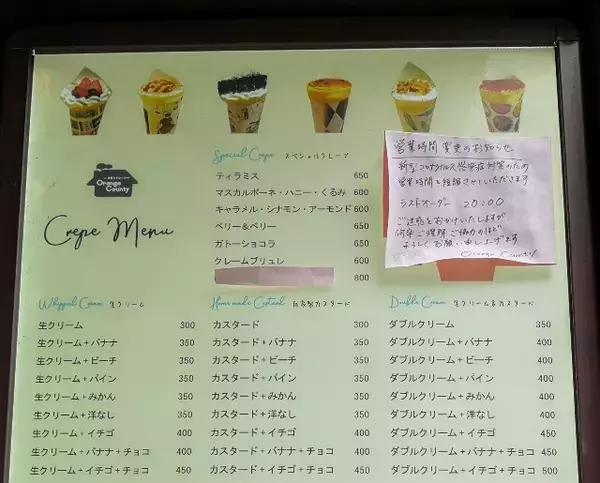 Orange County
Crepe Menu
Special Crepe スペシャルクレープ
ティラミス 650
マスカルポーネ・ハニー・くるみ 600
キャラメル・シナモン・アーモンド 600
ベリー&ベリー 650
ガトーショコラ 650
クレームブリュレ 650
800
営業時間変更のお知らせ
新型コロナウイルス感染症対策のため
営業時間を短縮させていただきます
ラストオーダー 20:00
ご迷惑をおかけいたしますが
何卒ご理解ご協力のほど
よろしくお願い申し上げます
Orange County
Whipped Cream 生クリーム
生クリーム 300
生クリーム+バナナ 350
生クリーム+ピーチ 350
生クリーム+パイン 350
生クリーム+みかん 350
生クリーム+洋なし 350
生クリーム+イチゴ 400
生クリーム+バナナ+チョコ 400
生クリーム+イチゴ+チョコ 450
Home made Custard 自家製カスタード
カスタード 300
カスタード+バナナ 350
カスタード+ピーチ 350
カスタード+パイン 350
カスタード+みかん 350
カスタード+洋なし 350
カスタード+イチゴ 400
カスタード+バナナ+チョコ 400
カスタード+イチゴ+チョコ 450
Double Cream 生クリーム&カスタード
ダブルクリーム 350
ダブルクリーム+バナナ 400
ダブルクリーム+ピーチ 400
ダブルクリーム+パイン 400
ダブルクリーム+みかん 400
ダブルクリーム+洋なし 400
ダブルクリーム+イチゴ 450
ダブルクリーム+バナナ+チョコ 450
ダブルクリーム+イチゴ+チョコ 500